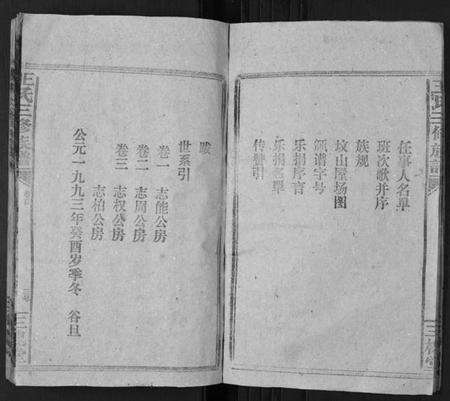 任事人名单
班次歌并序
族规
坟山屋场图
领谱字号
乐捐序言
乐捐名单
传赞引
跋
世系引
卷一 志能公房
卷二 志周公房
卷三 志权公房
志柏公房
公元一九九三年癸酉岁季冬 谷旦
王氏三修族谱